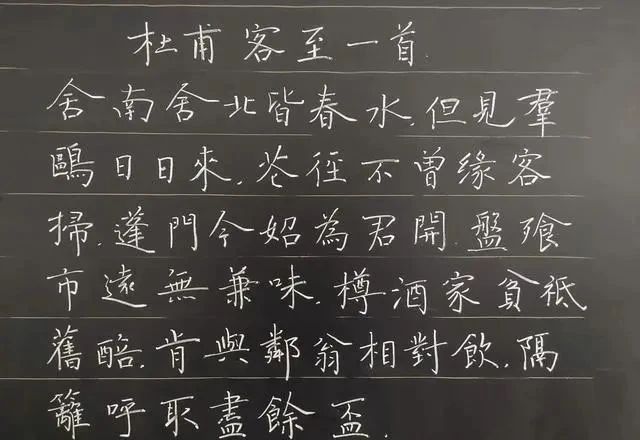 杜甫客至一首.
舍南舍北皆春水.但見羣
鷗日日來.花徑不曾缘客
掃.蓬門今始為君開.盤飱
市遠無兼味.樽酒家貧祗
舊醅.肯與鄰翁相對飲.隔
籬呼取盡餘盃.